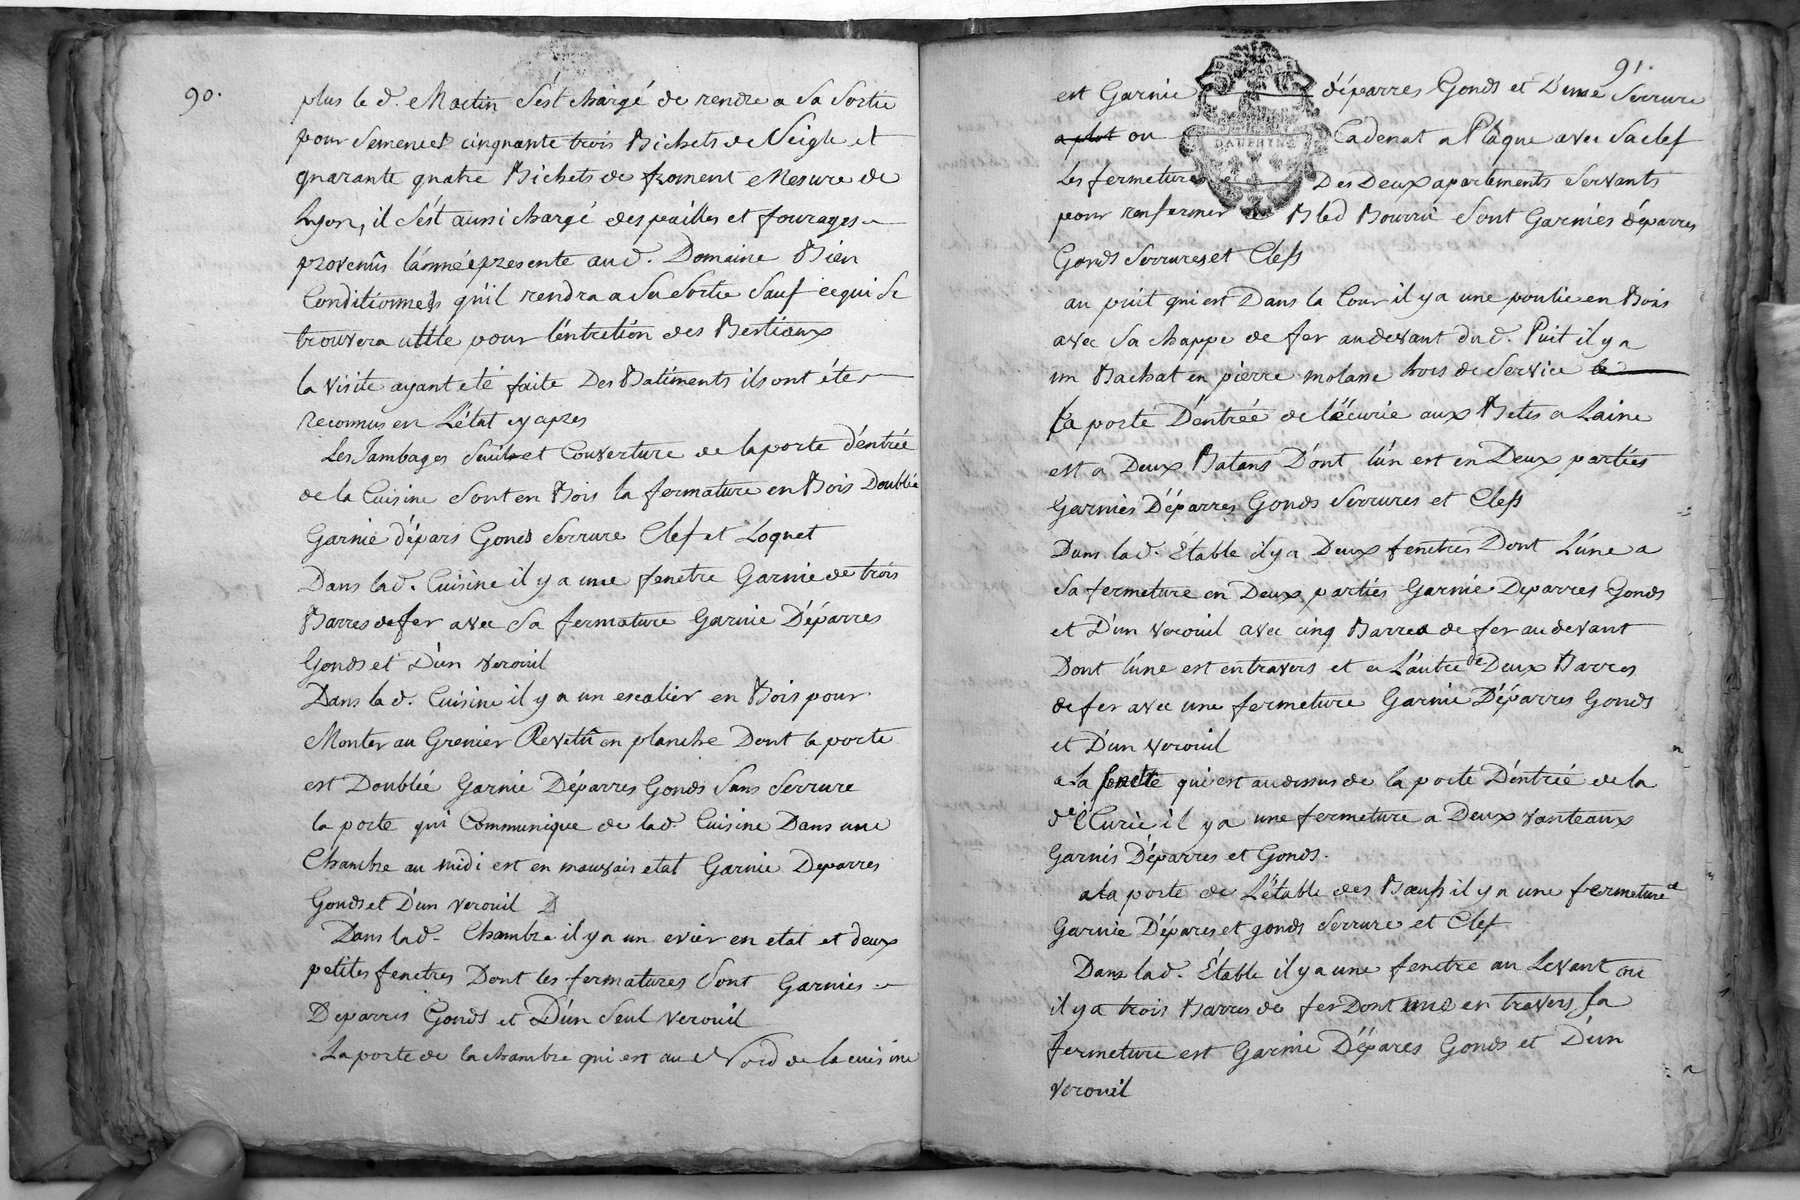 90.
plus le d. Martin s'est chargé de rendre a sa sortie
pour semences cinquante trois Bichets de Seigle et
quarante quatre Bichets de froment Mesure de
Lyon, il s'est aussi chargé des pailles et fourages
provenûs l'année presente au d. Domaine Bien
Conditionnés qu'il rendra a sa sortie sauf ce qui se
trouvera utile pour l'entretien des Bestiaux
la visite ayant eté faite Des Batiments ils ont étes
reconnus en L'état cy apres
Les Jambages seuil et Couverture de la porte d'entrée
de la Cuisine sont en Bois la fermature en Bois Doublée
Garnie d'épars Gonds serrure Clef et Loquet
Dans lad. Cuisine il y a une fenetre Garnie de trois
Barres de fer avec sa fermature Garnie D'éparres
Gonds et D'un verouil
Dans lad. Cuisine il y a un escalier en Bois pour
Monter au Grenier Revetû en planche Dont la porte
est Doublée Garnie Déparres Gonds sans serrure
la porte qui Communique de lad. Cuisine Dans une
Chambre au midi est en mauvais etat Garnie Deparres
Gonds et D'un verouil
Dans lad. Chambre il y a un evier en etat et deux
petites fenetres Dont les fermatures sont Garnies
Deparres Gonds et D'un seul verouil
La porte de la chambre qui est au Nord de la cuisine
91.
est Garnie d'éparres Gonds et D'une serrure
a plot ou Cadenat a Plaque avec sa clef
Les fermetures Des Deux apartements servants
pour renfermer Bled Bourru sont Garnies d'éparres
Gonds serrures et Clefs
au puit qui est Dans la Cour il y a une poulie en Bois
avec sa chappe de fer au devant dud. Puit il y a
un Bachat en pierre molasse hors de service
la porte D'entrée de l'écurie aux Betes a Laine
est a Deux Batans Dont l'un est en Deux parties
Garnies D'éparres Gonds serrures et Clefs
Dans lad. Etable il y a Deux fenetres Dont L'une a
sa fermeture en Deux parties Garnie Deparres Gonds
et D'un verouil avec cinq Barres de fer au devant
Dont l'une est en travers et a L'autre de Deux Barres
de fer avec une fermeture Garnie D'éparres Gonds
et D'un verouil
a la fenetre qui est au dessus de la porte D'entrée de la
de l'Ecurie il y a une fermeture a Deux vanteaux
Garnis D'éparres et Gonds.
a la porte de L'étable des Bœufs il y a une fermeture
Garnie D'épares et gonds serrure et Clef
Dans lad. Etable il y a une fenetre au Levant ou
il y a trois Barres de fer Dont une en travers sa
fermeture est Garnie D'épares Gonds et D'un
verouil